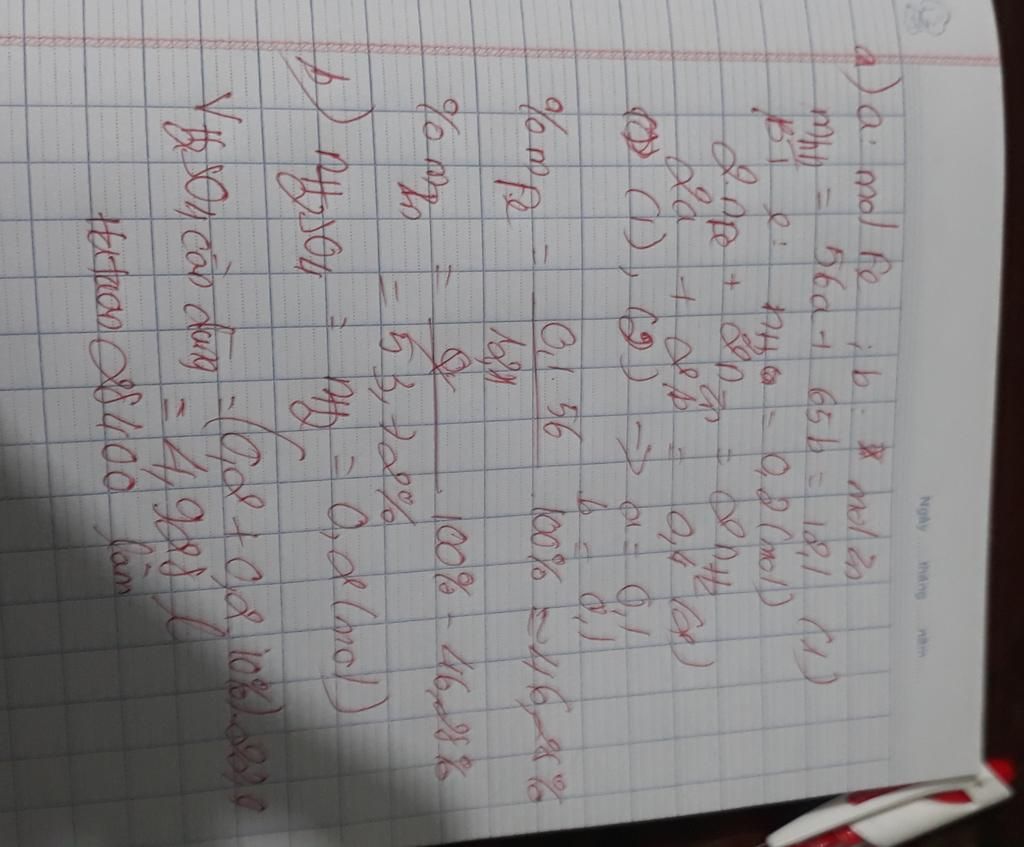 Ngày tháng năm
a) a: mol Fe ; b: mol Zn
mhh = 56a + 65b = 12,1 (1)
BT e: nH2 = 0,2 (mol)
2.nFe + 2n Zn = 2nH2
2a + 2b = 0,4 (2)
(1), (2) => a = 0,1
b = 0,1
%mFe = 0,1.56 / 12,1 100% = 46,28%
%mZn = 100% - 46,28%
= 53,72%
b) nH2SO4 = nH2 = 0,2 (mol)
VH2SO4 cần dùng = (0,2 + 0,2.10%)
= 4,928 l
28400 lần